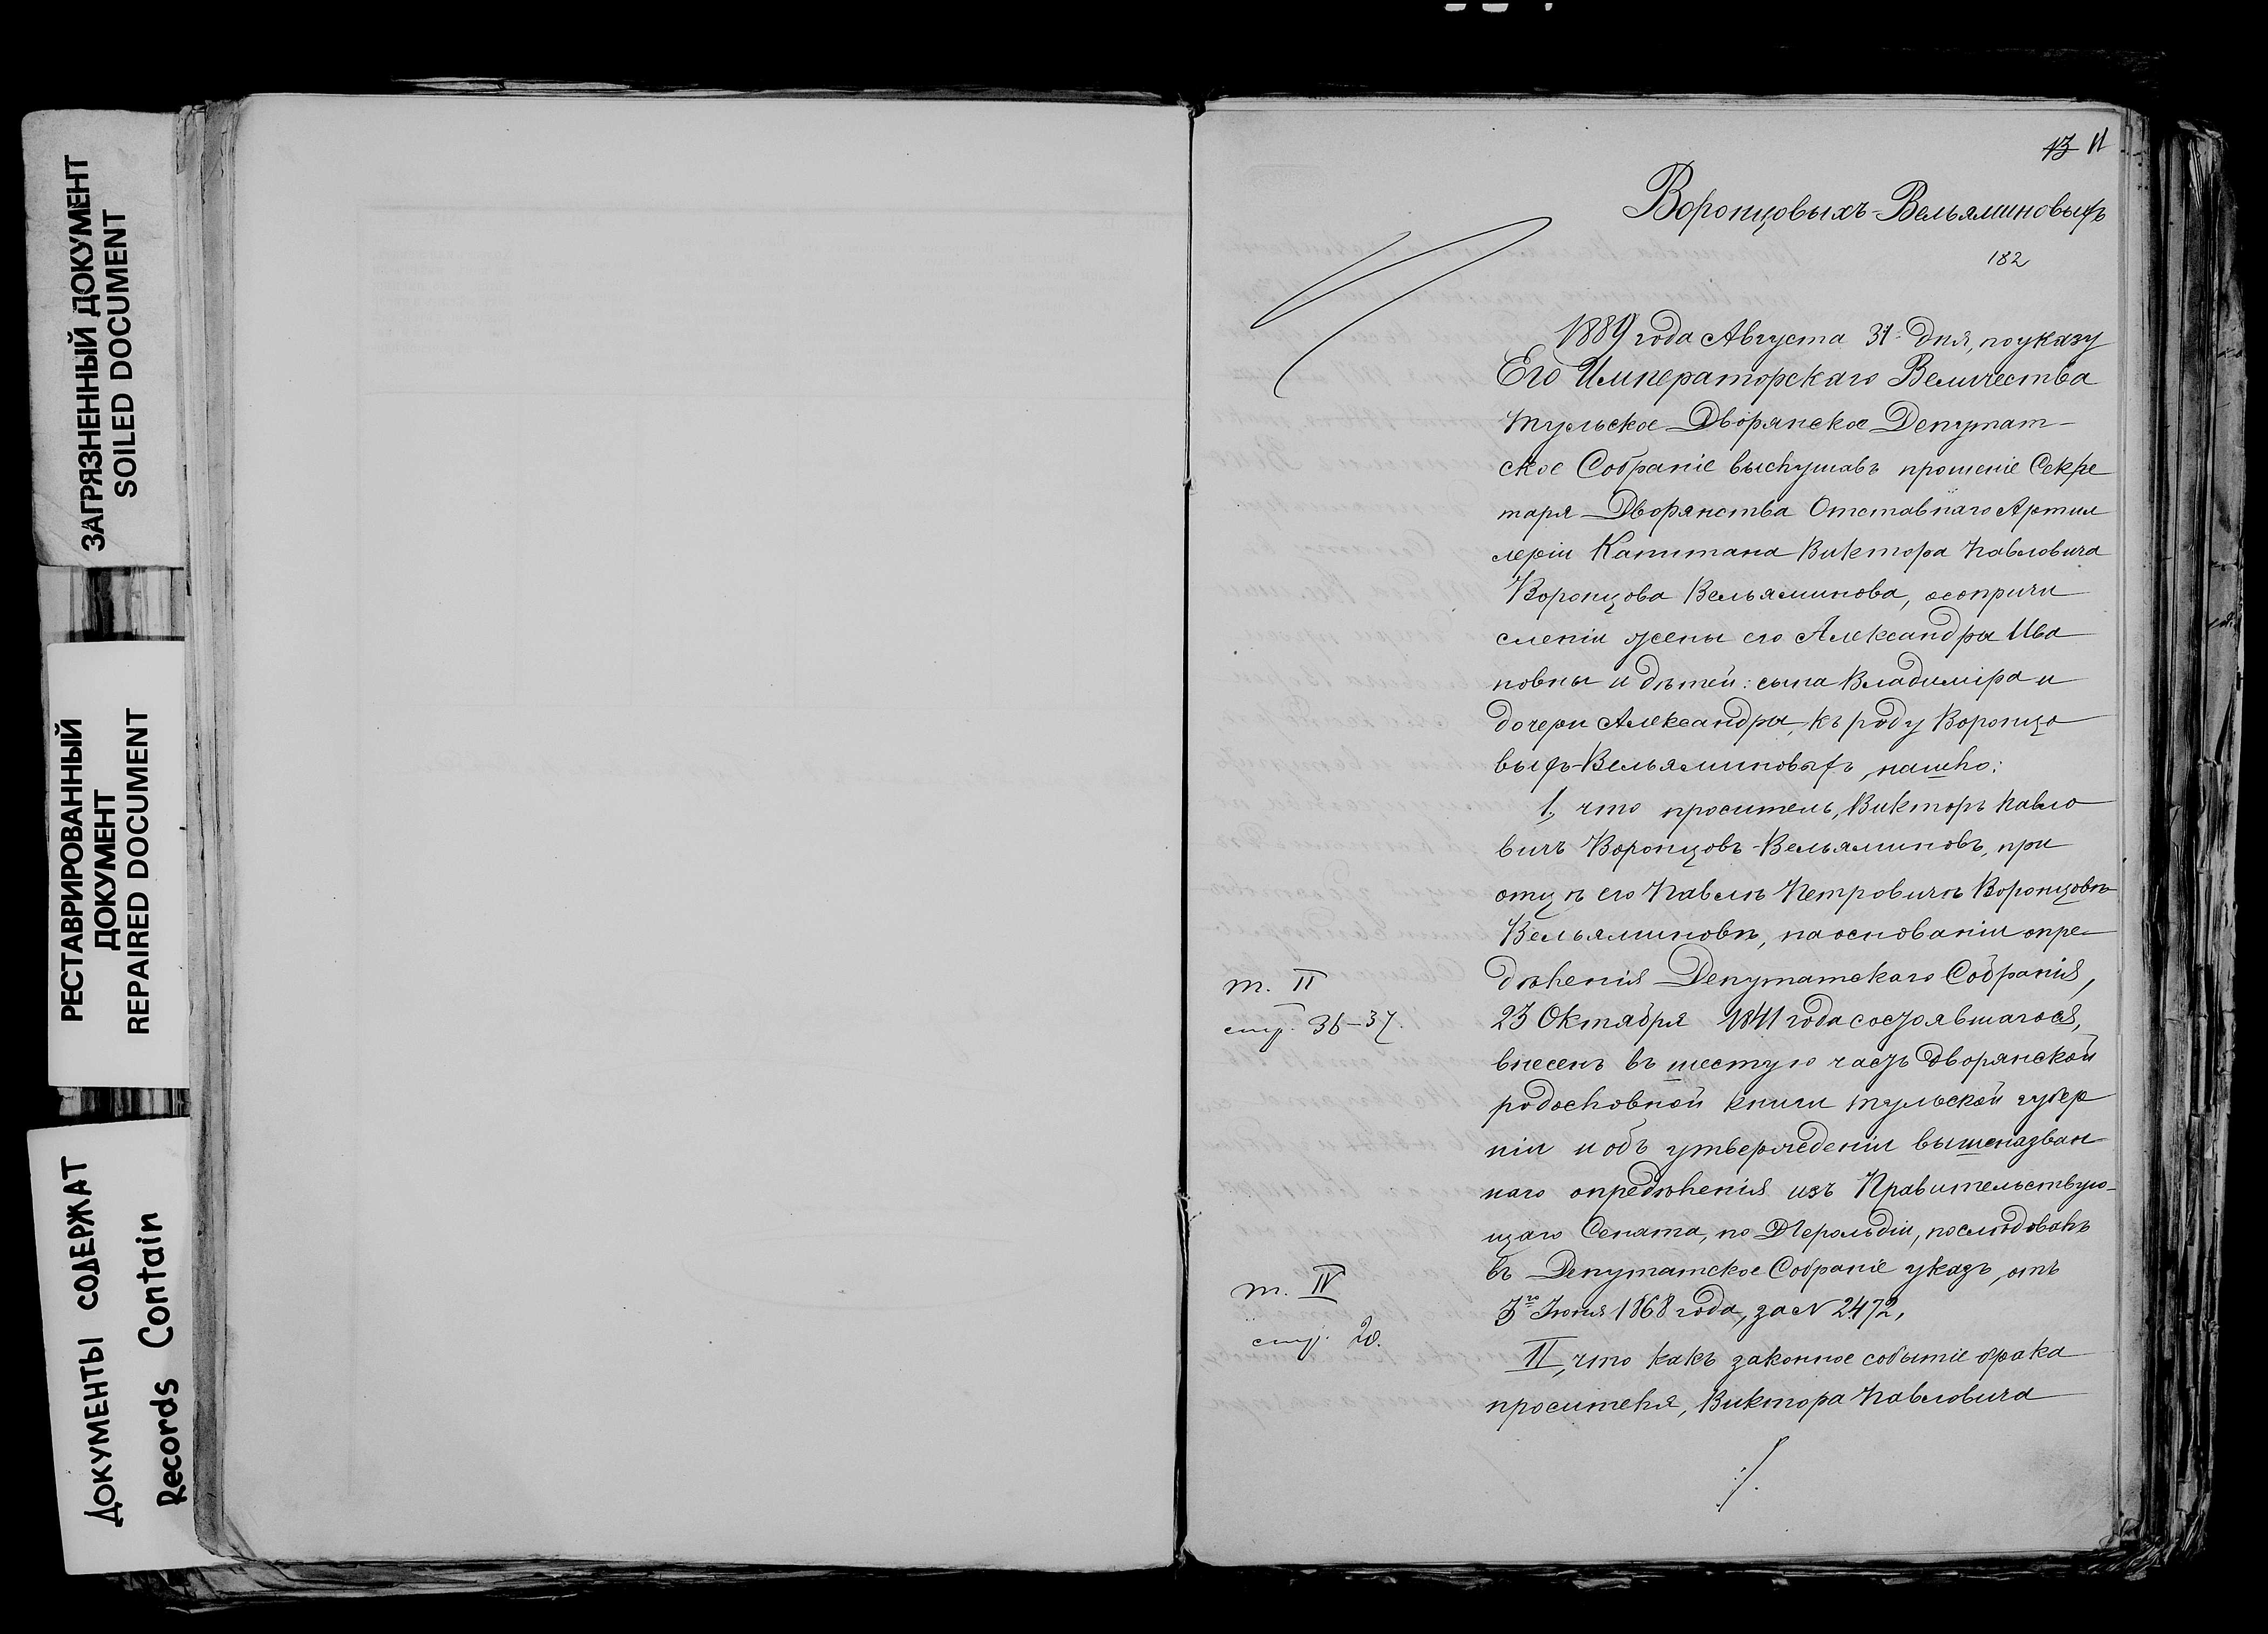 ЗАГРЯЗНЕННЫЙ ДОКУМЕНТ
SOILED DOCUMENT
РЕСТАВРИРОВАННЫЙ
ДОКУМЕНТ
REPAIRED DOCUMENT
ДОКУМЕНТЫ СОДЕРЖАТ
Records Contain
13 11
Воронцовыхъ-Вельяминовыхъ
182
1889 года Августа 31 дня, по указу
Его Императорскаго Величества
Тульское Дворянское Депутат-
ское Собраніе выслушавъ прошеніе Секре
таря Дворянства Отставнаго Артил
леріи Капитана Виктора Павловича
Воронцова Вельяминова, о сопричи
сленіи жены его Александры Ива
новны и дѣтей: сына Владиміра и
дочери Александры, къ роду Воронцо
выхъ-Вельяминовыхъ, нашло:
1, что проситель, Викторъ Павло
вичъ Воронцовъ-Вельяминовъ, при
отцѣ его Павлѣ Петровичѣ Воронцовѣ
Вельяминовѣ, на основаніи опре-
дѣленія Депутатскаго Собранія,
т. II
стр. 36-37.
23 Октября 1841 года состоявшагося,
внесенъ въ шестую часть дворянской
родословной книги Тульской губер
ніи и объ утвержденіи вышеназван
наго опредѣленія изъ Правительствую-
щаго Сената, по Герольдіи, послѣдовалъ
въ Депутатское Собраніе указъ, отъ
т. IV
стр. 20.
3го Іюня 1868 года, за N 2472,
II, что какъ законное событіе брака
просителя, Виктора Павловича
./.